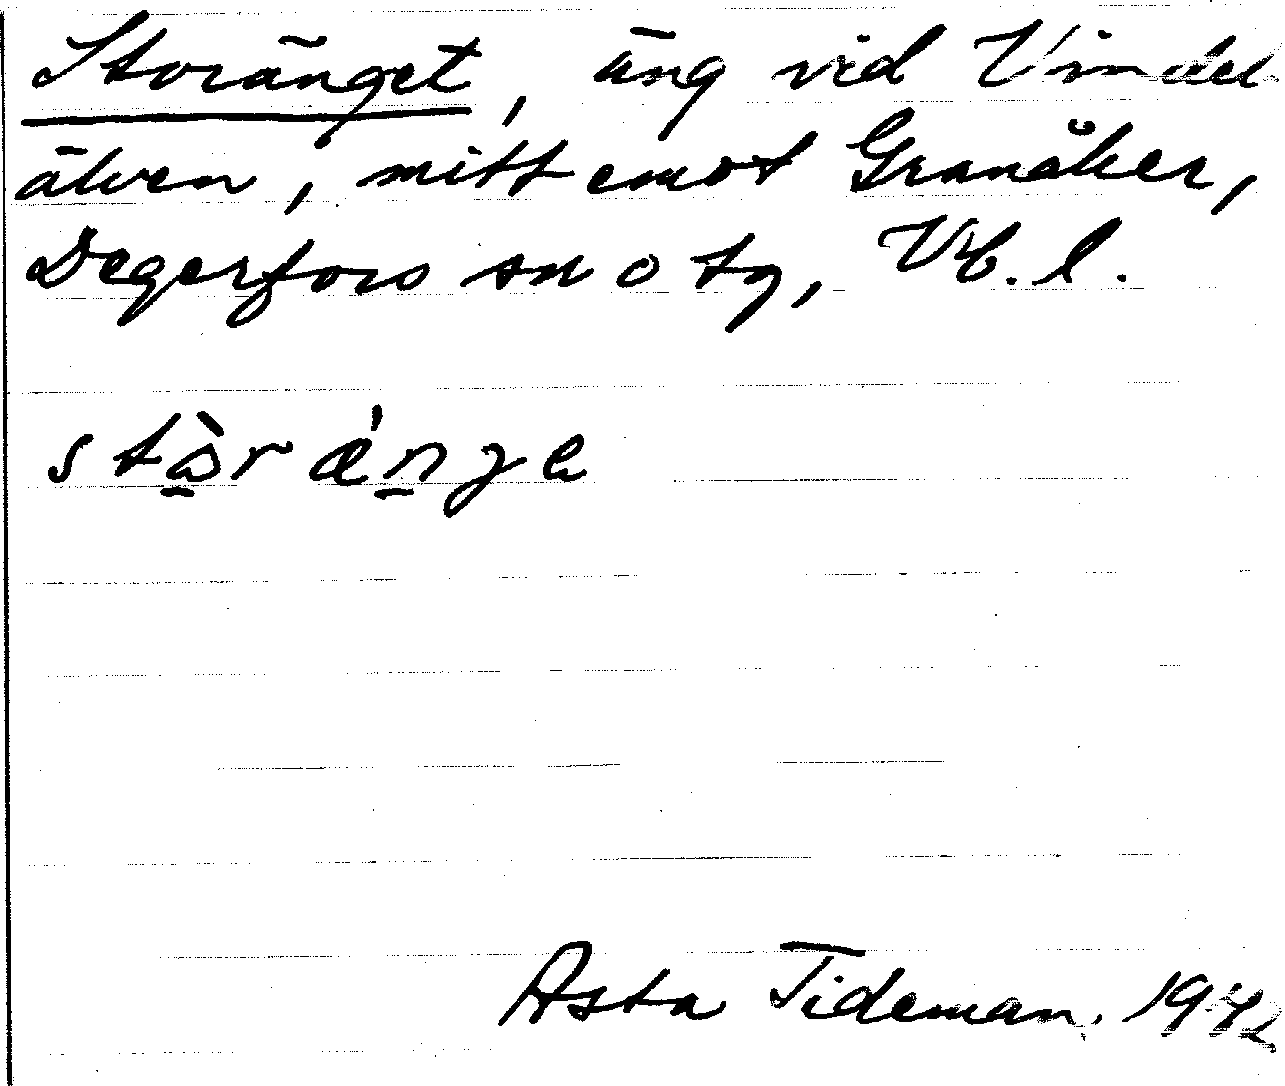 Storänget, äng vid Vindel
älven, mitt emot Granåker,
Degerfors sn o tg, Vb. l.
Asta Tideman. 1942